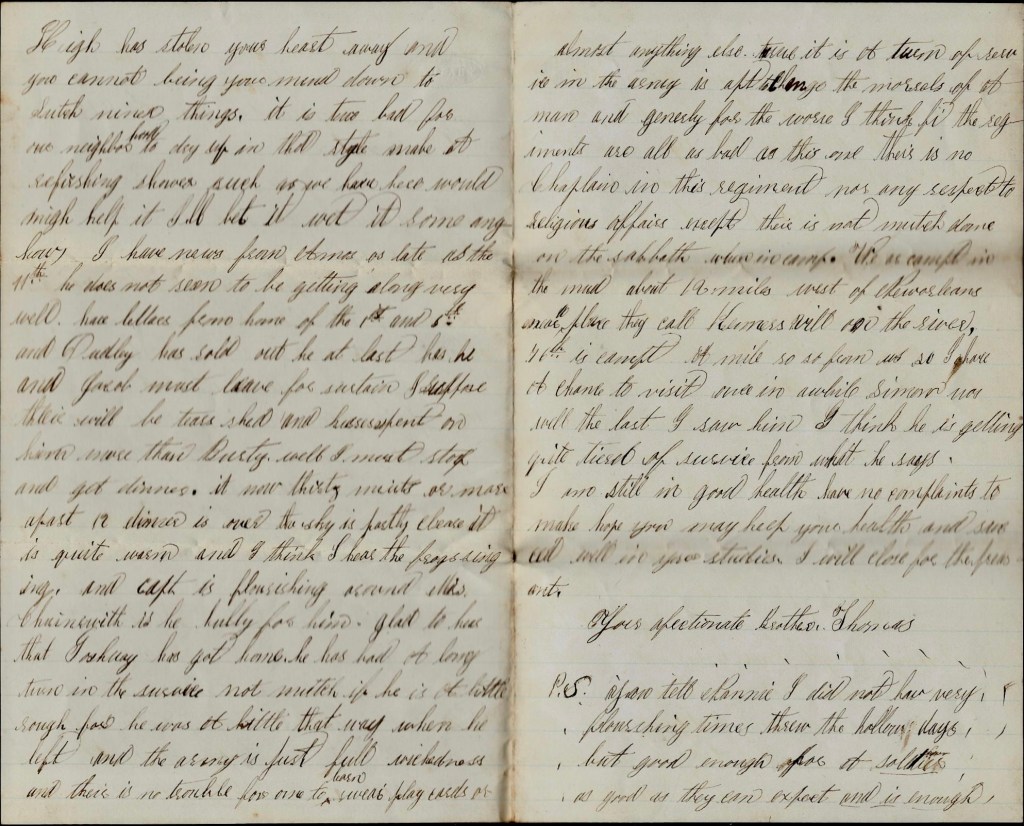 Heigh has stolen your heart away and
you cannot being your mind down to
sutch miner things. it is two bad for
our neighborhood to dry up in that style make it
refreshing shower such as we have here would
migh help it I'll bet it wet it some any
how I have news from Amos as late as the
11th he does not seem to be getting along very
well. have letters from home of the 1st and 5th
and Dudley has sold out he at last has he
and Jacob must leave for surtain I suppose
their will be tears shed and
him more than Dusty. well I must stop
and get dinner. it now thirty minits or more
apast 12 dinner is over the sky is partly cleare it
is quite warm and I think I hear the frogs sing
ing. and capt is flourishing around Miss
is he bully for him. glad to hear
that Joshuay has got home. he has had a long
turn in the survice not mutch if he is a little
rough for he was a little that way when he
left and the army is just full wickedness
and their is no trouble for one to learn swear play cards or
almost anything else. true it is a turn of serv
ice in the army is apt to change the morsels of a
man and generly for the worse I think if the reg
iments are all as bad as this one their is no
Chaplain in this regiment nor any respect to
religious affairs except their is not mutch done
on the sabbath when in camp. We ar campt in
the mud about 12 miles west of Neworleans
near a place they call Kenners Will on the river.
46th is campt a mile so so from us so I have
a chance to visit once in awhile Simon was
well the last I saw him I think he is getting
quite tierd of survice from what he says.
I am still in good health have no complaints to
make hope you may keep your health and suc
ced well in your studies. I will close for the pres
ant.
Your afectionate Brother. Thomas
P.S. if you tell Nannie I did not hav very
flourshing times threw the hollow days
but good enough for a soldier
as good as they can expect and is enough